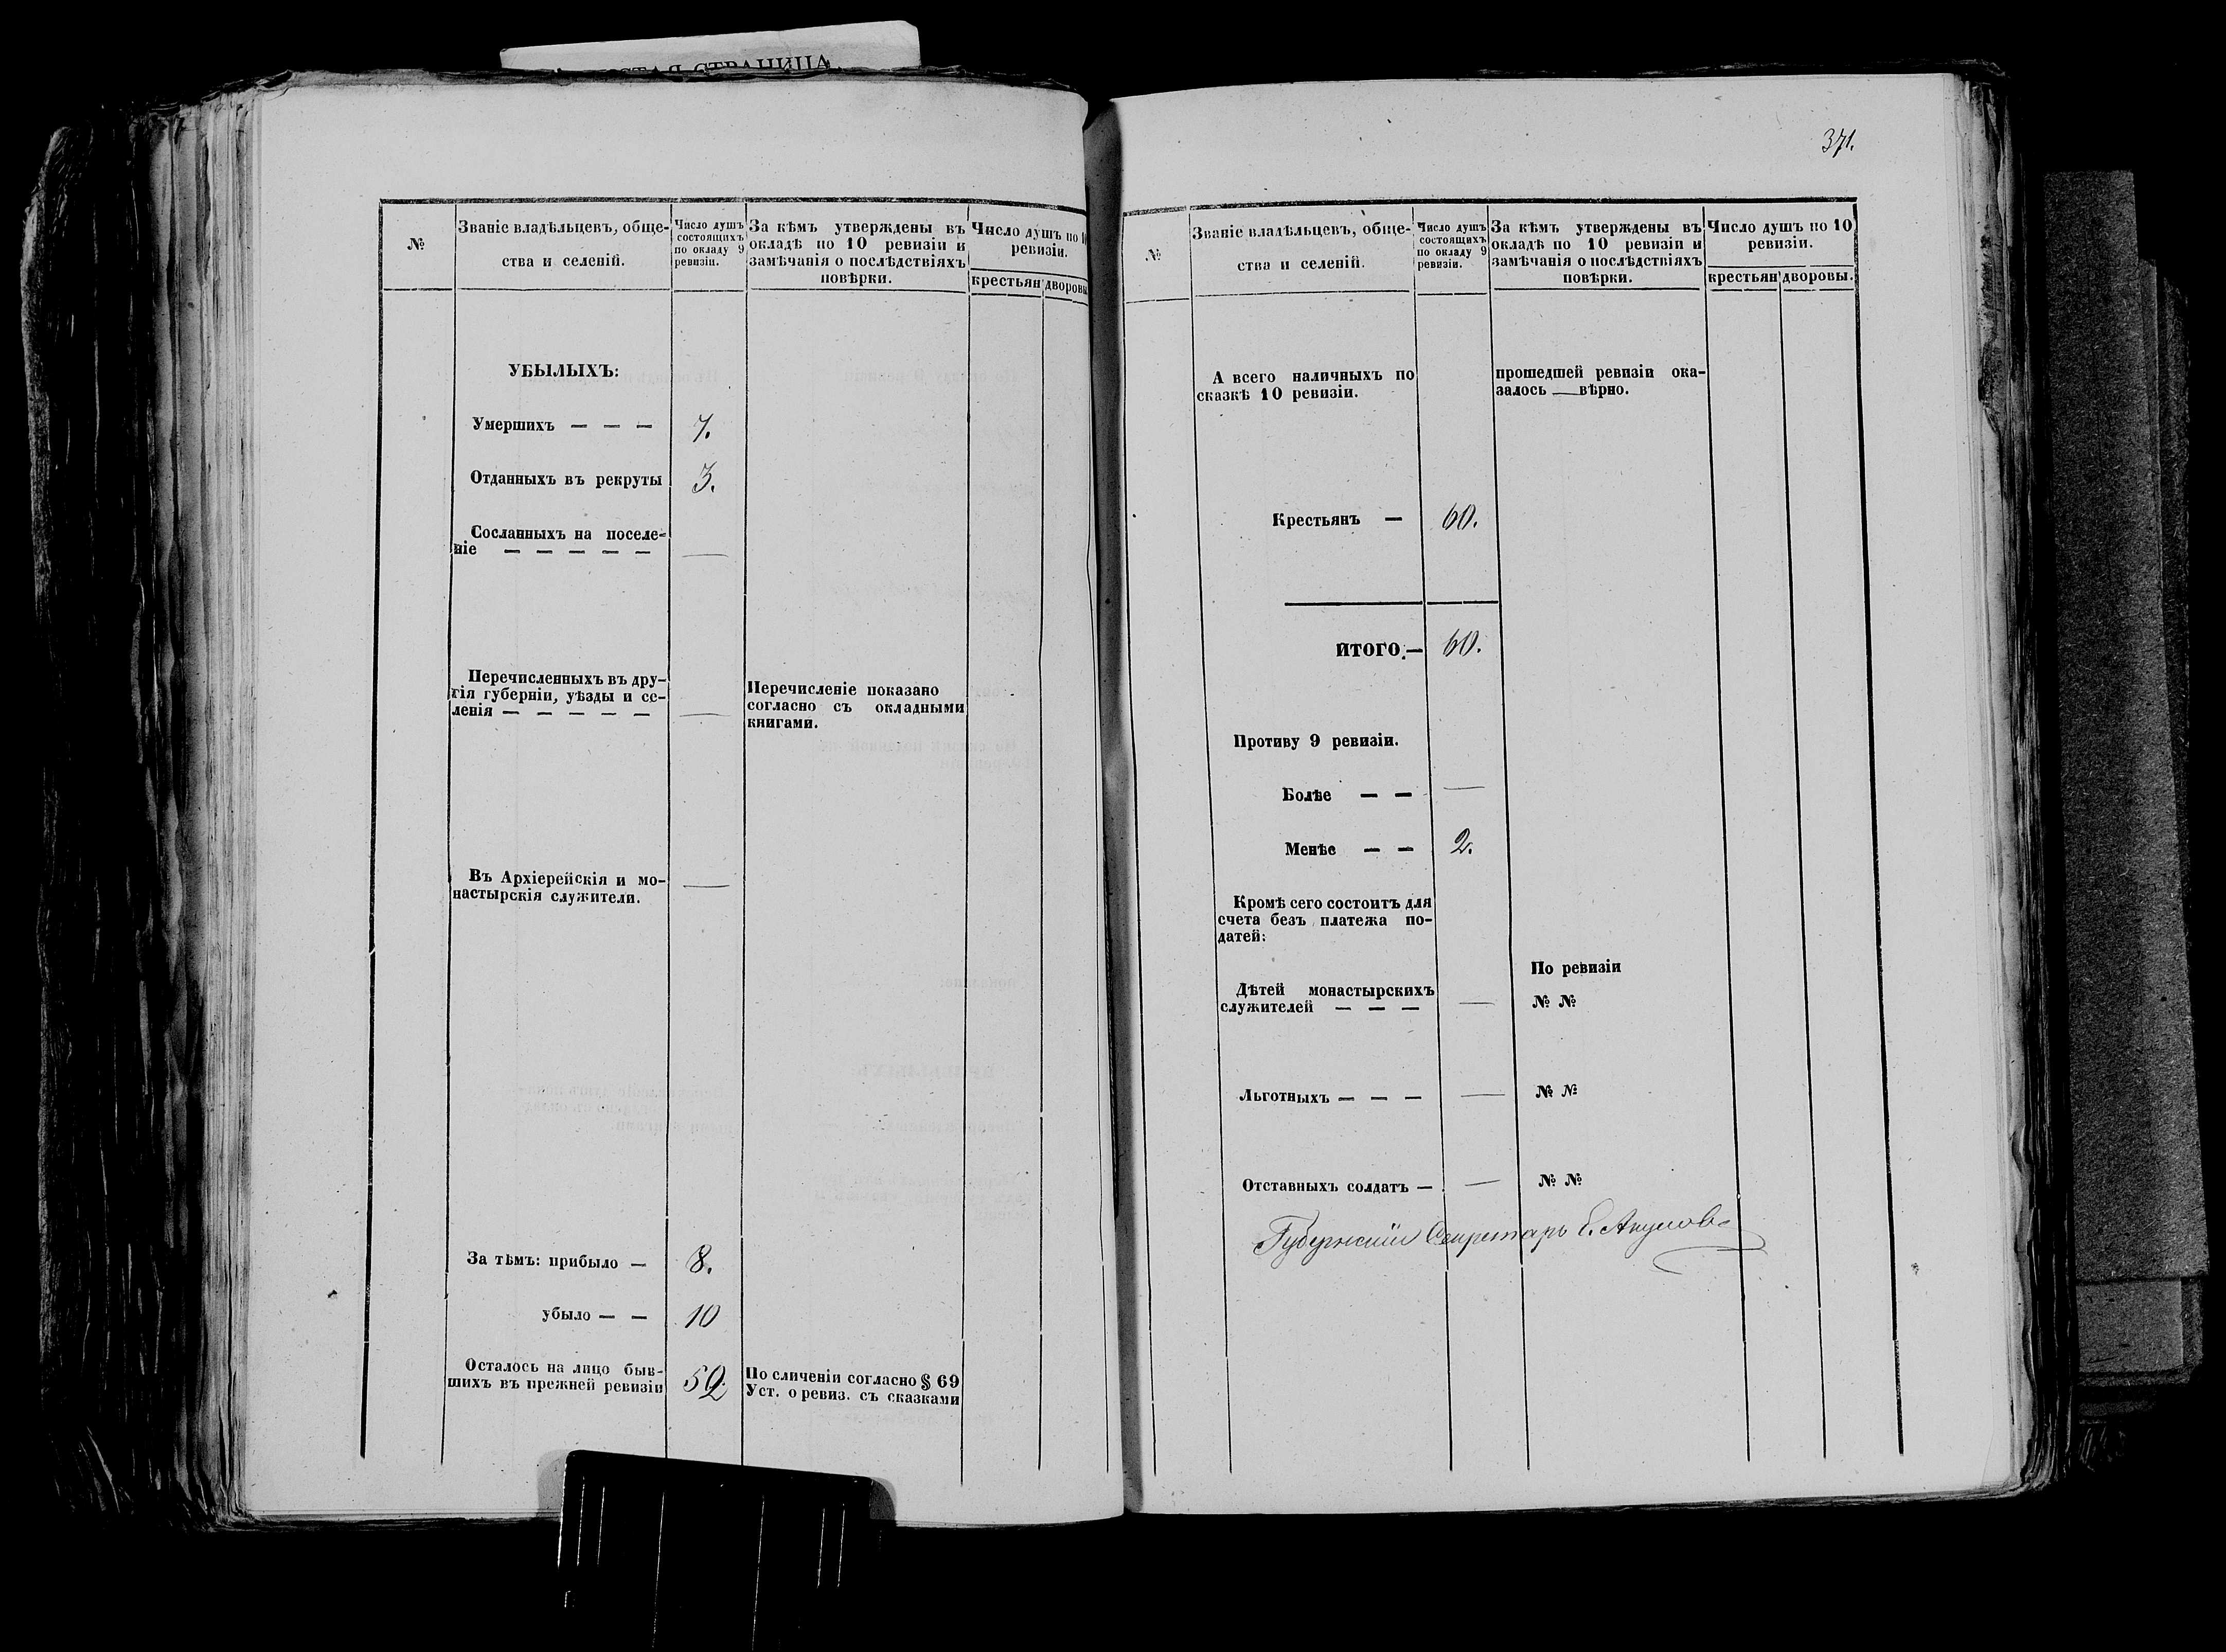 СТАЯ СТРАНИЦА
№
Званіе владѣльцевъ, обще-
ства и селеній.
Число душъ
состоящихъ
по окладу 9
ревизіи.
За кѣмъ утверждены въ
окладѣ по 10 ревизіи и
замѣчанія о послѣдствіяхъ
повѣрки.
Число душъ по 10
ревизіи.
крестьян дворовы
УБЫЛЫХЪ:
Умершихъ — — — 7.
Отданныхъ въ рекруты 3.
Сосланныхъ на поселе-
ніе — — — — — —
Перечисленныхъ въ дру-
гія губерніи, уѣзды и се-
ленія — — — — — —
Перечисленіе показано
согласно съ окладными
книгами.
Въ Архіерейскія и мо- —
настырскія служители.
За тѣмъ: прибыло — 8.
убыло — — 10
Осталось на лицо быв-
шихъ въ прежней ревизіи 52
По сличеніи согласно § 69
Уст. о ревиз. съ сказками
371.
№
Званіе владѣльцевъ, обще-
ства и селеній.
Число душъ
состоящихъ
по окладу 9
ревизіи.
За кѣмъ утверждены въ
окладѣ по 10 ревизіи и
замѣчанія о послѣдствіяхъ
повѣрки.
Число душъ по 10
ревизіи.
крестьян дворовы.
А всего наличныхъ по
сказкѣ 10 ревизіи.
прошедшей ревизіи ока-
залось — вѣрно.
Крестьянъ — 60.
ИТОГО.— 60.
Противу 9 ревизіи.
Болѣе — — —
Менѣе — — 2.
Кромѣ сего состоитъ для
счета безъ платежа по-
датей:
По ревизіи
Дѣтей монастырскихъ
служителей — — — — № №
Льготныхъ — — — — № №
Отставныхъ солдатъ — — № №
Губернскій Секретарь Е.